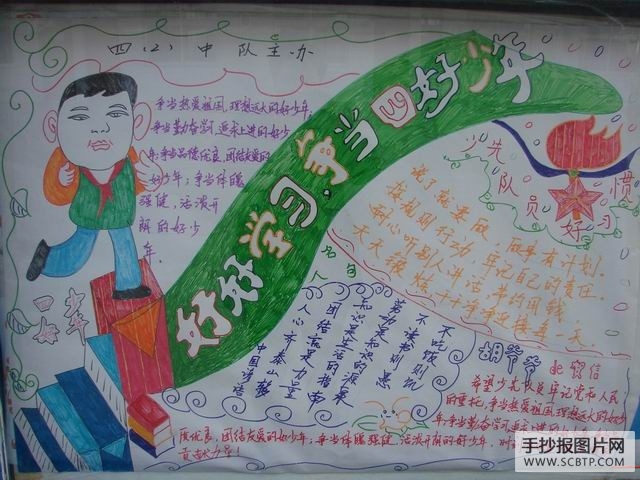 四（2）中队主办
好好学习,争当四好少年
争当热爱祖国,理想远大的好少年,
争当勤奋学习,追求上进的好少
年,争当品德优良,团结友爱的
好少年,争当体魄
强健,活泼开
朗的好少
年.
四好少年
少先队员好习惯
说了就要做,做事有计划.
按规则行动,牢记自己的责任.
耐心听别人讲话,节约用钱
天天锻炼,干干净净迎接每一天.
名句
不吃饭则饥
不读书则愚
劳动是知识的源泉
知识是生活的指南
团结就是力量
人心齐泰山移
胡爷爷的贺信
希望少先队员牢记党和人民
的重托,争当热爱祖国,理想远大的好少
年,争当勤奋学习,追求上进的好少年,
品德优良,团结友爱的好少年,争当体魄强健,活泼开朗的好少年.
贡献力量!
手抄报图片网
WWW.SCBTP.COM